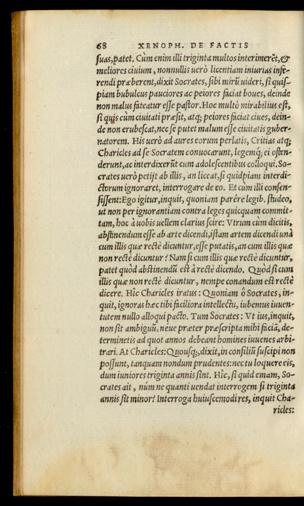 68 XENOPH. DE FACTIS
suas, patet. Cùm enim illi triginta multos interimerēt, &
meliores ciuium, nonnullis uerò licentiam iniurias infe-
rendi præberent, dixit Socrates, sibi mirū uideri, si quis-
piam bubulcus pauciores ac peiores faciat boues, deinde
non malus fateatur esse pastor. Hoc multò mirabilius est,
si quis cùm ciuitati præsit, atq; peiores faciat ciues, dein-
de non erubescat, nec se putet malum esse ciuitatis guber-
natorem. His uerò ad aures eorum perlatis, Critias atq;
Charicles ad se Socratem conuocarunt, legemq́; ei osten-
derunt, ac interdixerūt cum adolescentibus colloqui. So-
crates uerò petijt ab illis, an liceat, si quidpiam interdi-
ctorum ignoraret, interrogare de eo. Et cùm illi consen-
sissent: Ego igitur, inquit, quoniam parére legib. studeo,
ut non per ignorantiam contra leges quicquam commit-
tam, hoc à uobis uellem clarius scire: Vtrum cùm dicitis,
abstinendum esse ab arte dicendi, istam artem dicendi unà
cum illis quæ rectè dicuntur, esse putatis, an cum illis quæ
non rectè dicuntur? Nam si cum illis quæ rectè dicuntur,
patet quòd abstinendū est à rectè dicendo. Quòd si cum
illis quæ non rectè dicuntur, nempe conandum est rectè
dicere. Hîc Charicles iratus: Quoniam ô Socrates, in-
quit, ignoras hæc tibi faciliora intellectu, iubemus iuuen-
tutem nullo alloqui pacto. Tum Socrates: Vt ius, inquit,
non sit ambiguū, neue præter præscripta mihi faciā, de-
terminetis ad quot annos debeant homines iuuenes arbi-
trari. At Charicles: Quousq;, dixit, in consiliū suscipi non
possunt, tanquam nondum prudentes: nec tu loquere eis,
dum iuniores triginta annis sint. Hîc, si quid emam, So-
crates ait, núm ne quanti uendat interrogem si triginta
annis sit minor? Interroga huiuscemodi res, inquit Cha-
ricles: